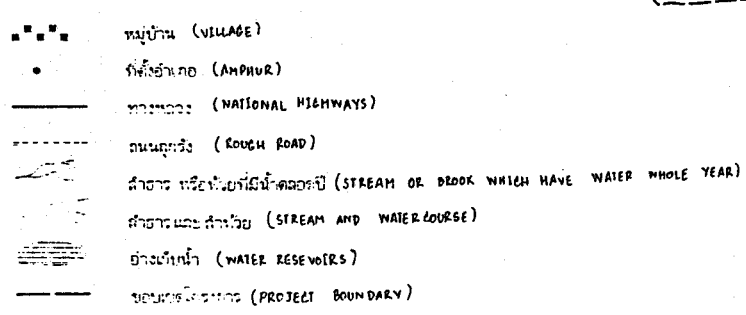 หมู่บ้าน (VILLAGE)
ที่ตั้งอำเภอ (AMPHUR)
ทางหลวง (NATIONAL HIGHWAYS)
ถนนลูกรัง (ROUGH ROAD)
ลำธาร หรือห้วยที่มีน้ำตลอดปี (STREAM OR BROOK WHICH HAVE WATER WHOLE YEAR)
ลำธารและลำห้วย (STREAM AND WATERCOURSE)
อ่างเก็บน้ำ (WATER RESEVOIRS)
ขอบเขตโครงการ (PROJECT BOUNDARY)